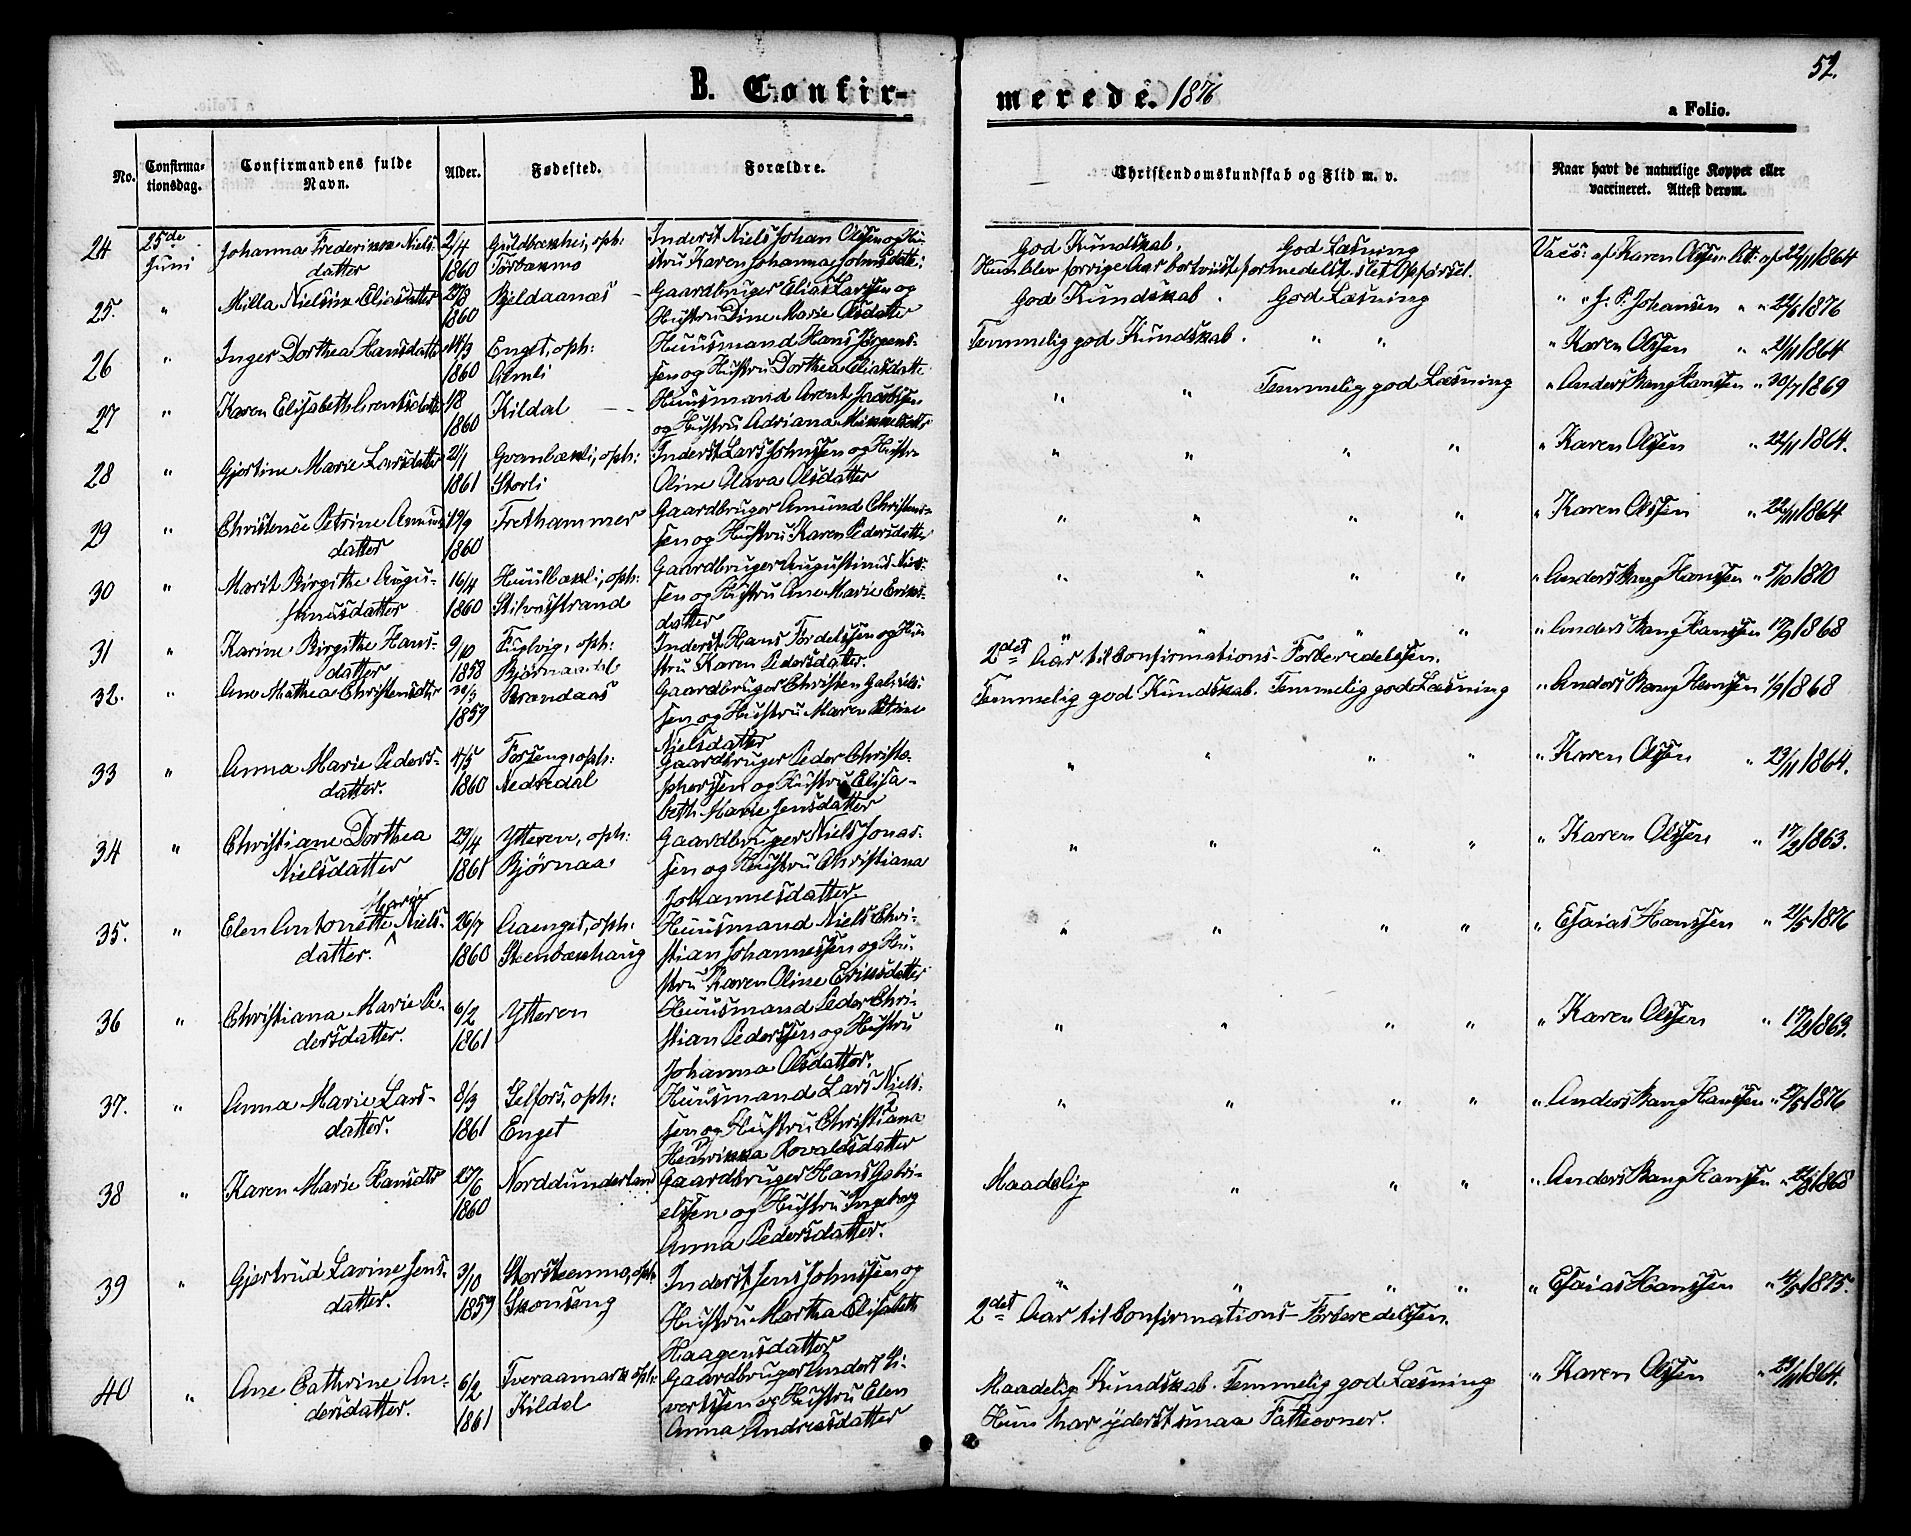 52.
B. Confir-
merede. 1876
a Folio.
No.
Confirma-
tionsdag.
Confirmandens fulde
Navn.
Alder.
Fødested.
Forældre.
Christendomskundskab og Flid m. v.
Naar havt de naturlige Kopper eller
vaccineret. Attest derom.
24 25de Juni Johanna Frederikka Niels-
datter 2/4 1860
Inderst Niels Johan Olssen og Hu-
stru Karen Johanna Johnsdatt:
God Kundskab. God Læsning
Hun blev forrige Aar bortviist formedelst slet Opførsel.
Vacc: af Karen Olssen Att: af 22/11 1864
25. " Milla Nielsine Eliasdatter 1860 Bjeldaanæs
Gaardbruger Elias Larssen og
Hustru Dine Marie Olsdatter
God Kundskab. God Læsning
" " J. P. Johansen " " 1876
26 " Inger Dorthea Hansdatt 14/3 1860 Enget, oph:
Huusmand Hans Jørgens-
sen og Hustru Dorthea Eliasdatt:
Temmelig god Kundskab. " "
" Karen Olssen " " 21/11 1864
27 " Karen Elisabeth Arentsdatt 1860 Kildal
Huusmand Arent Jacobsen
og Hustru Adriana
" " Temmelig god Læsning
" Anders Bang Hanssen " 30/7 1869
28 " Gjertine Marie Larsdatter 2/1 1861 Granbækli, oph:
Storli
Inderst Lars Johnssen og Hustru
Oline Olava Olsdatter
" " " "
" Karen Olssen " 22/11 1864.
29 " Christense Petrine Amunds-
datter 19/9 1860 Frethammer
Gaardbruger Amund Christens-
sen og Hustru Karen Pedersdatter
" " " "
" Karen Olssen " 22/11 1864
30 " Marit Birgithe Augu-
stinusdatter 16/4 1860 oph:
Stilvasstrand
Gaardbruger Augustinus Niels-
sen og Hustru Ane Marie Eriks-
datter
" " " "
" Anders Bang Hanssen " 5/10 1870
31 " Karine Birgithe Hans-
datter 9/10 1858 Fuglvig, oph:
Bjørnaadal
Inderst Hans Fordelssen og Hu-
stru Karen Pedersdatter.
" " " "
2det Aar til Confirmations-Forberedelsen.
" Anders Bang Hanssen 17/9 1868
32. " Ane Mathea Christensdtr 1859 Brandaas
Gaardbruger Christen Gabriels-
sen og Hustru Maren Petrine
Nielsdatter
Temmelig god Kundskab. Temmelig god Læsning
" Anders Bang Hanssen 1/9 1868
33 " Anna Marie Peders-
datter. 4/5 1860 Forseng, oph:
Nedredal
Gaardbruger Peder Christo-
phersen og Hustru Elisa-
beth Marie Jensdatter
" " " "
" Karen Olssen " 23/11 1864.
34 " Christiane Dorthea
Nielsdatter 29/4 1861 Ytteren, oph:
Bjørnaa
Gaardbruger Niels Jonas-
sen og Hustru Christiana
Johannesdatter.
" " " "
" Karen Olssen " 17/2 1863.
35. " Elen Antonette Marie Niels-
datter. 26/7 1860 Aaenget, oph:
Steenbækhaug
Huusmand Niels Chri-
stian Johannessen og Hu-
stru Karen Oline Eriksdatter
" " " "
" Esaias Hanssen " 21/5 1876
36 " Christiana Marie Pe-
dersdatter. 6/2 1861 Ytteren
Huusmand Peder Chri-
stian Pederssen og Hustru
Johanna Olsdatter.
" " " "
" Karen Olssen " 17/2 1863.
37. " Anna Marie Lars-
datter. 8/3 1861 Selfors, oph:
Enget
Huusmand Lars Niels-
sen og Hustru Christiana
Hedvikka Rovaldsdatter
" " " "
" Anders Bang Hanssen " 27/5 1876
38 " Karen Marie Hansdtr 27/6 1860 Norddunderland
Gaardbruger Hans Gabri-
elssen og Hustru Ingeborg
Anna Pedersdatter.
Maadelig " " "
" Anders Bang Hanssen " 1868
39 " Gjertrud Lavine Jens-
datter. 3/10 1859 Storsteenmo, oph:
Skonseng
Inderst Jens Johnssen og
Hustru Martha Elisabeth
Haagensdatter
" " " "
2det Aar til Confirmations-Forberedelsen.
" Esaias Hanssen " 4/5 1875.
40 " Ane Cathrine An-
dersdatter. 6/2 1861 Tveraamark oph:
Kildal
Gaardbruger Anders Si-
vertssen og Hustru Elen
Anna Andreasdatter
Maadelig Kundskab. Temmelig god Læsning
Hun har yderst smaa Fatteevner.
" Karen Olssen " 23/11 1864.